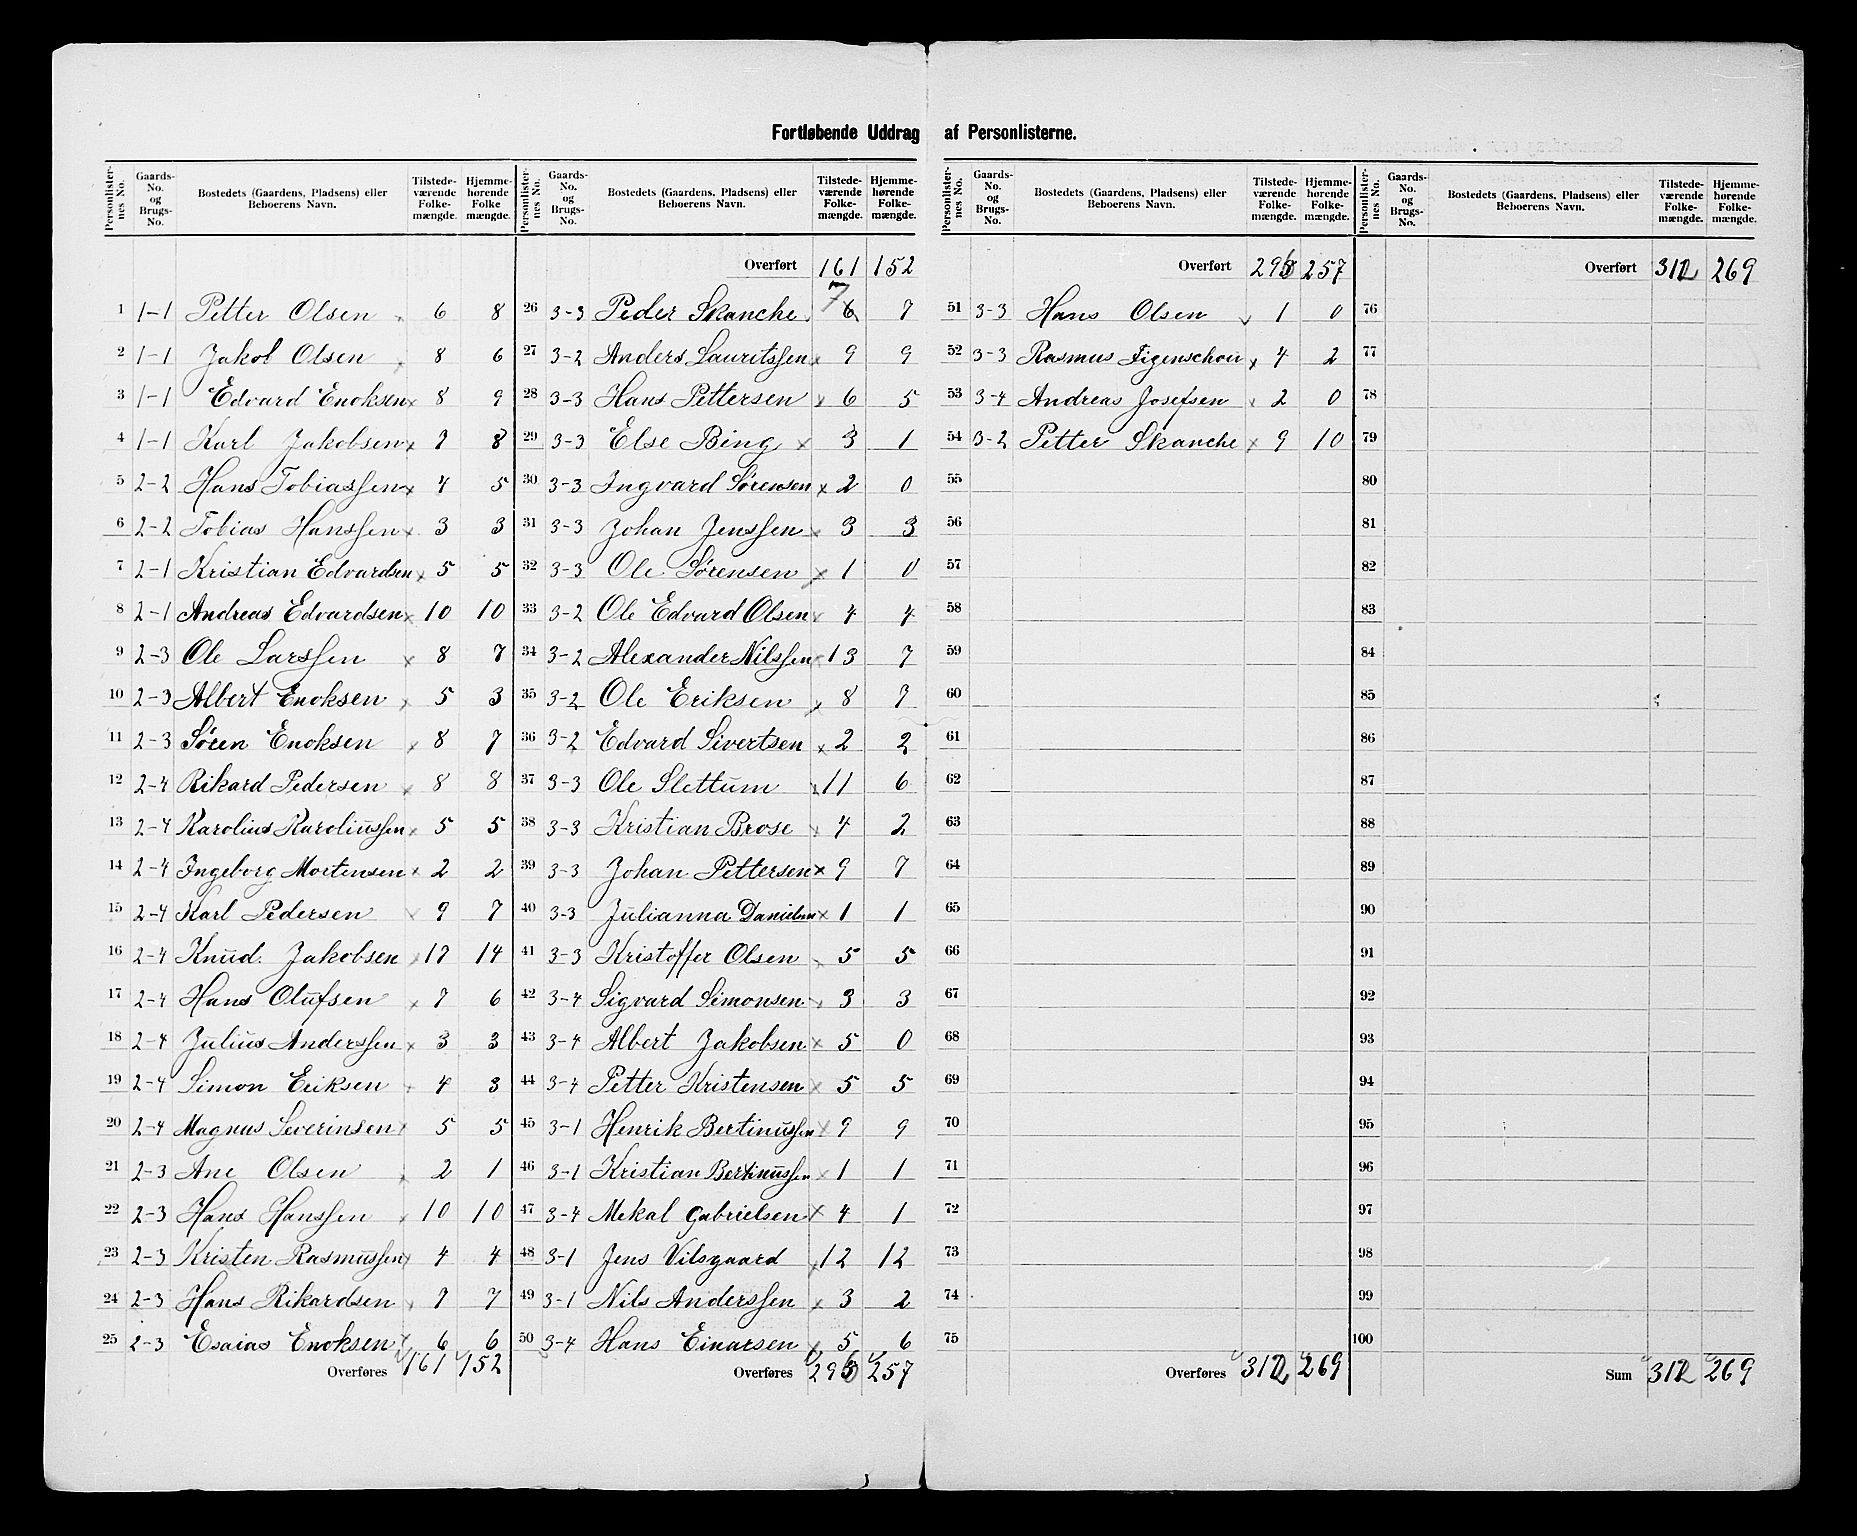 Fortløbende Uddrag af Personlisterne.
Personlister-nes No. | Gaards-No. og Brugs-No. | Bostedets (Gaardens, Pladsens) eller Beboerens Navn. | Tilstede-værende Folke-mængde. | Hjemme-hørende Folke mængde.
1 1-1 Petter Olsen 6 8
2 1-1 Jakob Olsen 8 6
3 1-1 Edvard Enoksen 8 9
4 1-1 Karl Jakobsen 9 8
5 2-2 Hans Tobiassen 4 5
6 2-2 Tobias Hanssen 3 3
7 2-1 Kristian Edvardsen 5 5
8 2-1 Andreas Edvardsen 10 10
9 2-3 Ole Larssen 8 7
10 2-3 Albert Enoksen 5 3
11 2-3 Sören Enoksen 8 7
12 2-4 Rikard Pedersen 8 8
13 2-4 Karolius Karoliussen 5 5
14 2-4 Ingeborg Mortensen 2 2
15 2-4 Karl Pedersen 9 7
16 2-4 Knud. Jakobsen 17 14
17 2-4 Hans Olufsen 7 6
18 2-4 Julius Anderssen 3 3
19 2-4 Simon Eriksen 4 3
20 2-4 Magnus Severinsen 5 5
21 2-3 Ane Olsen 2 1
22 2-3 Hans Hanssen 10 10
23 2-3 Kristen Rasmussen 4 4
24 2-3 Hans Rikardsen 9 7
25 2-3 Esaias Enoksen 6 6
Overføres 161 152
Personlister-nes No. | Gaards-No. og Brugs-No. | Bostedets (Gaardens, Pladsens) eller Beboerens Navn. | Tilstede-værende Folke-mængde. | Hjemme-hørende Folke-mængde.
Overført 161 152
26 3-3 Peder Skanche 7 6 7
27 3-2 Anders Lauritssen 9 9
28 3-3 Hans Pettersen 6 5
29 3-3 Else Bing 3 1
30 3-3 Ingvard Sörensen 2 0
31 3-3 Johan Jenssen 3 3
32 3-3 Ole Sörensen 1 0
33 3-2 Ole Edvard Olsen 4 4
34 3-2 Alexander Nilssen 13 7
35 3-2 Ole Eriksen 8 7
36 3-2 Edvard Sivertsen 2 2
37 3-3 Ole Slettum 11 6
38 3-3 Kristian Brose 4 2
39 3-3 Johan Pettersen 9 7
40 3-3 Julianna Danielsen 1 1
41 3-3 Kristoffer Olsen 5 5
42 3-4 Sigvard Simonsen 3 3
43 3-4 Albert Jakobsen 5 0
44 3-4 Petter Kristensen 5 5
45 3-1 Henrik Bertinussen 9 9
46 3-1 Kristian Bertinussen 1 1
47 3-4 Mekal Gabrielsen 4 1
48 3-1 Jens Vilsgaard 12 12
49 3-1 Nils Anderssen 3 2
50 3-4 Hans Einarsen 5 6
Overføres 296 257
Personlister-nes No. | Gaards-No. og Brugs-No. | Bostedets (Gaardens, Pladsens) eller Beboerens Navn. | Tilstede-værende Folke-mængde. | Hjemme-hørende Folke-mængde.
Overført 296 257
51 3-3 Hans Olsen 1 0
52 3-3 Rasmus Figenschou 4 2
53 3-4 Andreas Josefsen 2 0
54 3-2 Petter Skanche 9 10
55
56
57
58
59
60
61
62
63
64
65
66
67
68
69
70
71
72
73
74
75
Overføres 312 269
Personlister-nes No. | Gaards-No. og Brugs-No. | Bostedets (Gaardens, Pladsens) eller Beboerens Navn. | Tilstede-værende Folke-mængde. | Hjemme-hørende Folke-mængde.
Overført 312 269
76
77
78
79
80
81
82
83
84
85
86
87
88
89
90
91
92
93
94
95
96
97
98
99
100
Sum 312 269